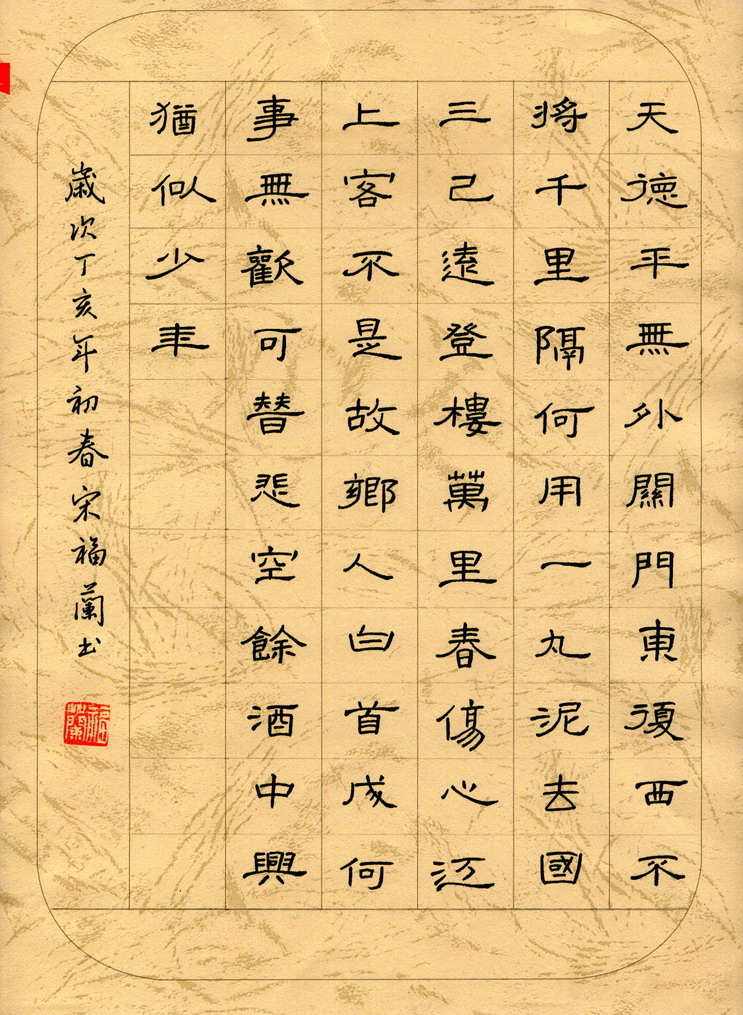 天德平無外關門東復西不
將千里隔何用一丸泥去國
三巳遠登樓萬里春傷心江
上客不是故鄉人白首成何
事無歡可替悲空餘酒中興
猶似少年
歲次丁亥年初春宋福蘭书
福蘭